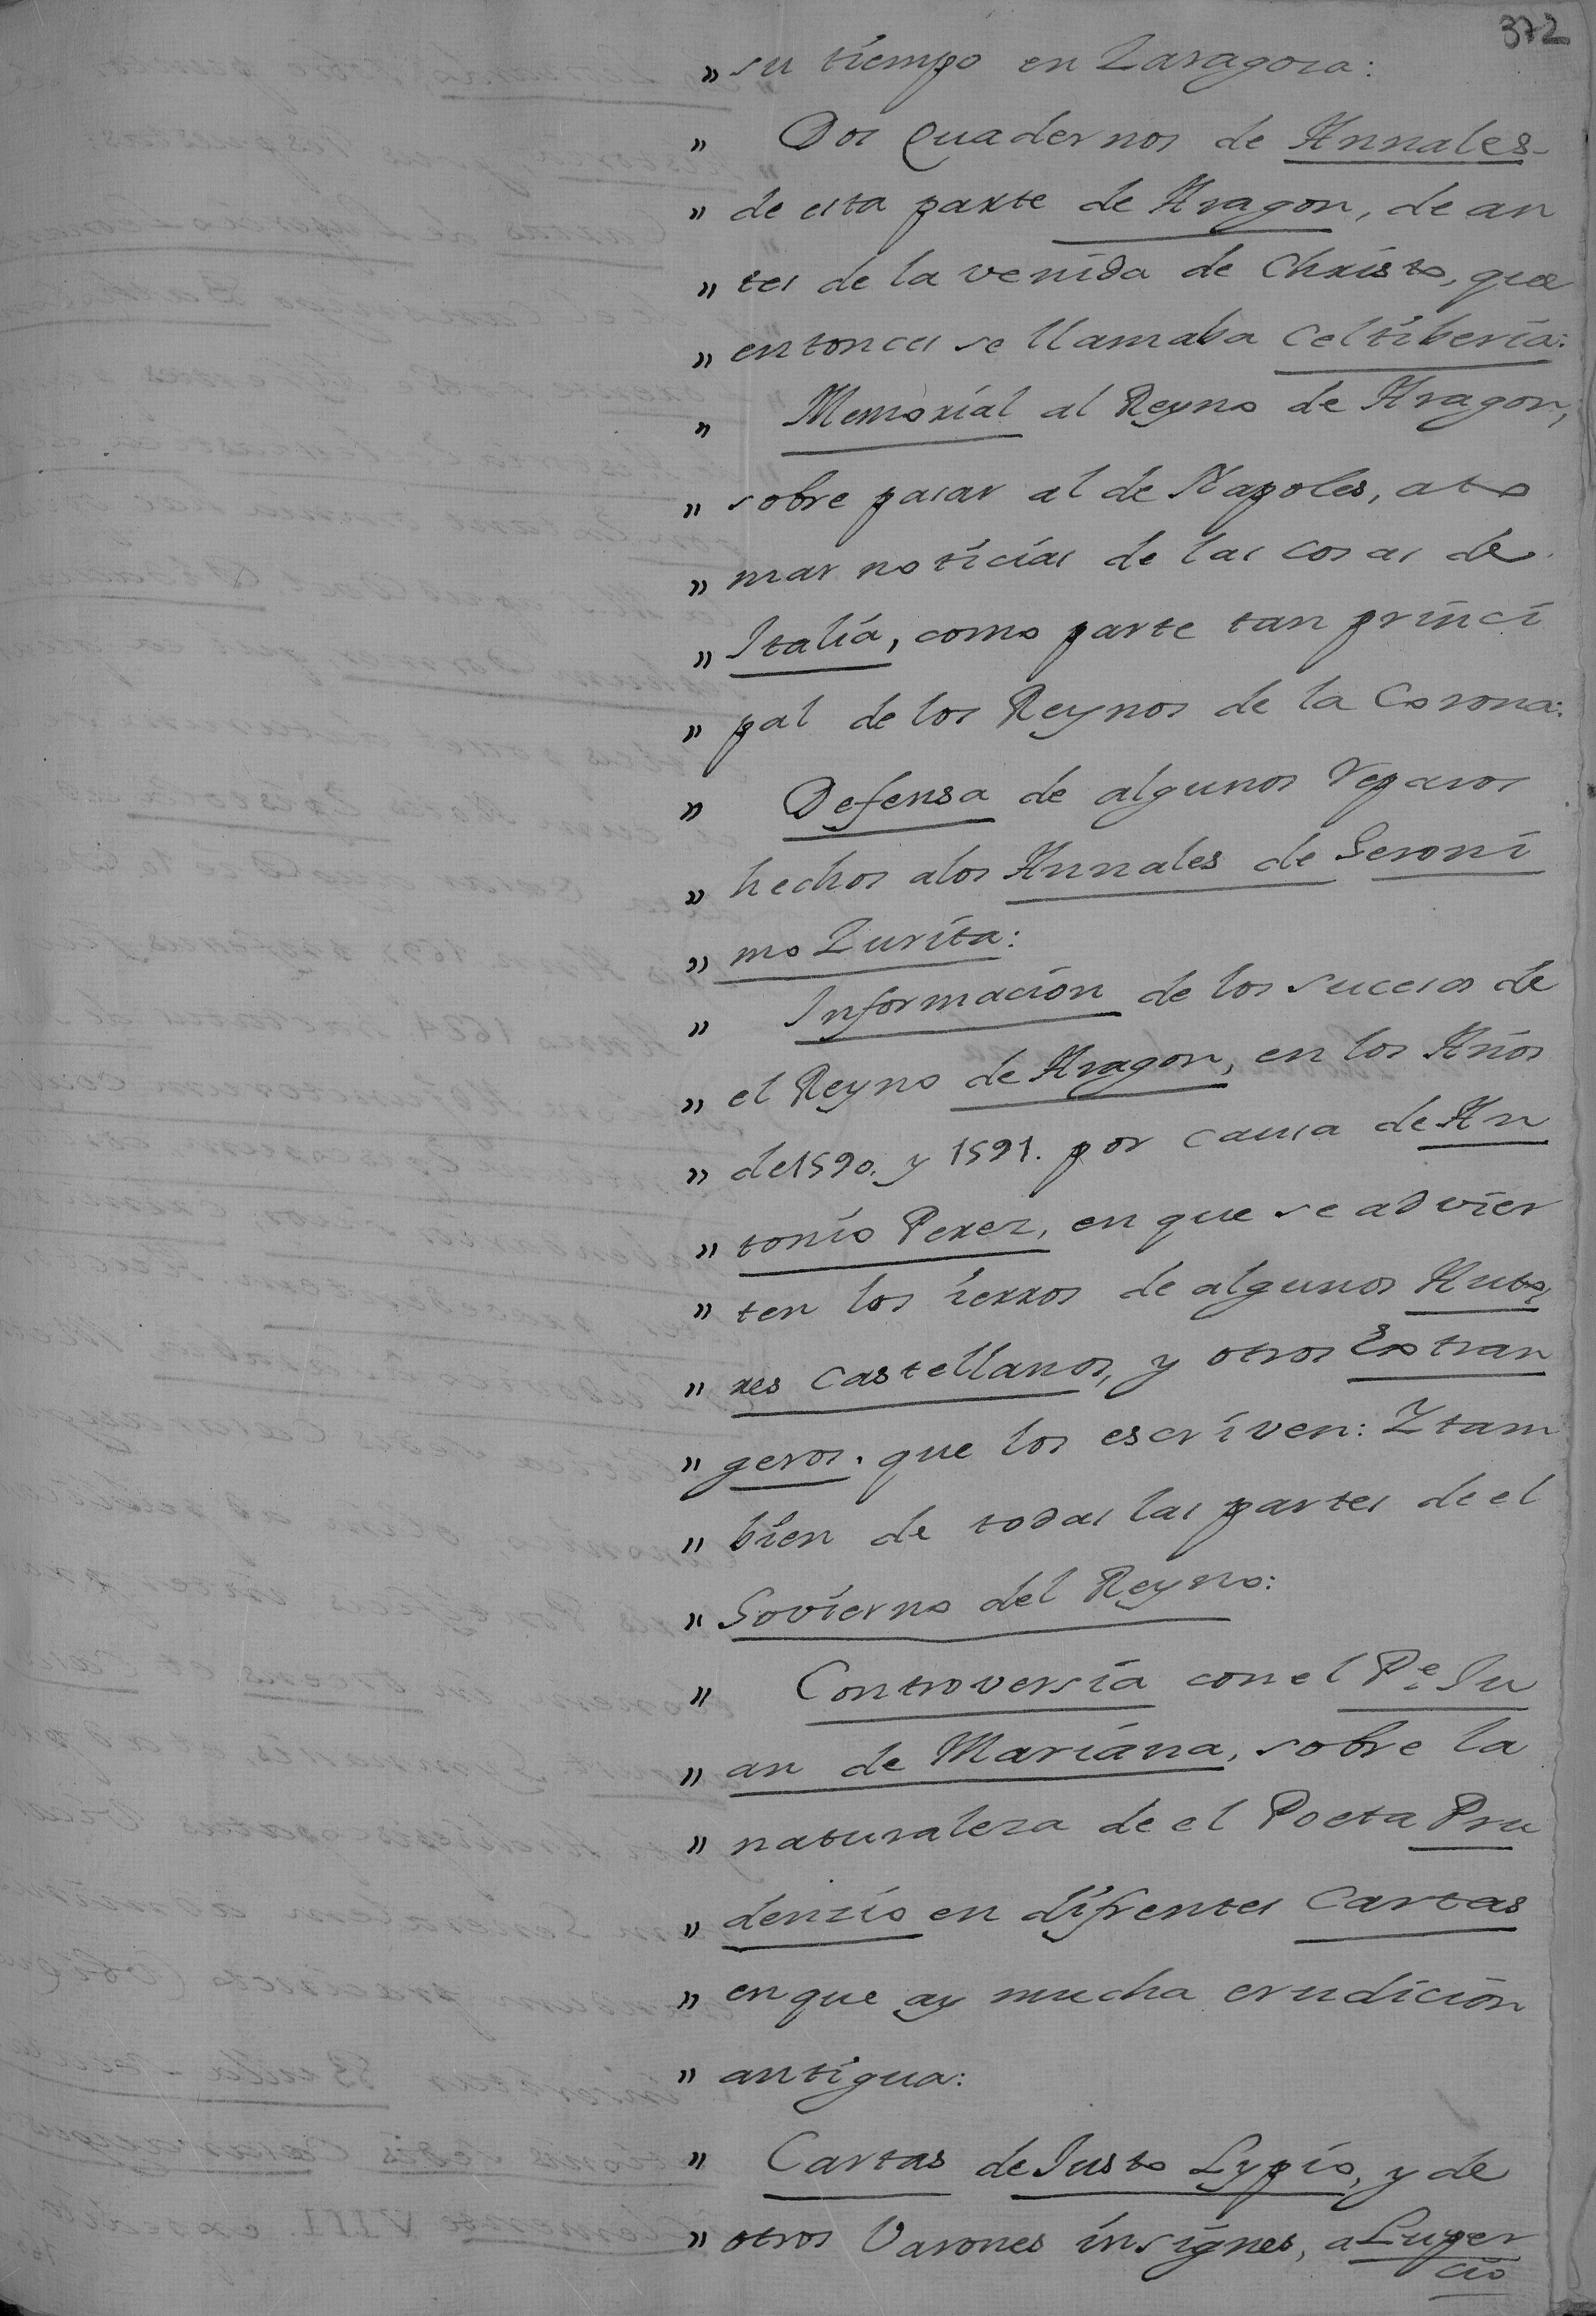 372
" su tiempo en Zaragoza:
" Dos Quadernos de Annales
" de esta parte de Aragon, de an
" tes de la venida de Christo, que
" entonces se llamaba Celtiberia:
" Memorial al Reyno de Aragon,
" sobre pasar al de Napoles, a to
" mar noticias de las cosas de
" Italia, como parte tan princi
" pal de los Reynos de la Corona:
" Defensa de algunos reparos
" hechos a los Annales de Geroni
" mo Zurita:
" Informacion de los sucesos de
" el Reyno de Aragon, en los Años
" de 1590. y 1591. por causa de An
" tonio Perez, en que se advier
" ten los ierros de algunos Auto
" res Castellanos, y otros Extran
" geros. que los escriven: Y tam
" bien de todas las partes de el
" Govierno del Reyno:
" Controversia con el Pe. Ju
" an de Mariana, sobre la
" naturaleza de el Poeta Pru
" denzio en difrentes Cartas
" en que ay mucha erudicion
" antigua:
" Cartas de Justo Lypio, y de
" otros Varones insignes, a Luper
cio